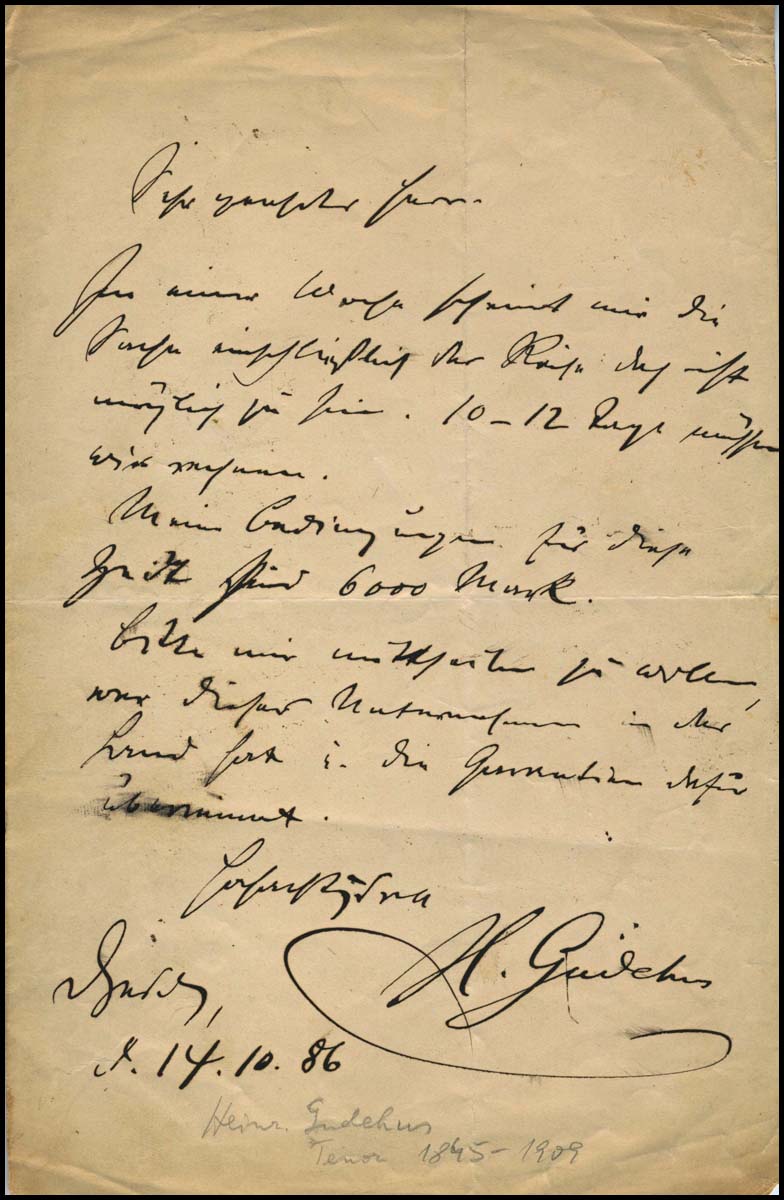 Sehr geehrter Herr.
In einer Woche scheint mir die
Sache einschließlich der Reise doch nicht
möglich zu sein. 10–12 Tage müssen
wir rechnen.
Meine Bedingungen für diese
Zeit sind 6000 Mark.
Bitte mir mittheilen zu wollen,
wer dieses Unternehmen in der
Hand hat u. die Garantien dafür
übernimmt.
Hochachtungsvoll
H. Gudehus
Dresden,
d. 14. 10. 86
Heinr. Gudehus
Tenor 1845–1909